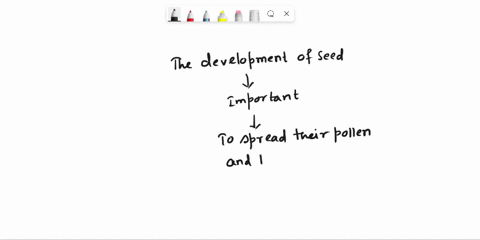 The development of seed
Important
To spread their pollen
and